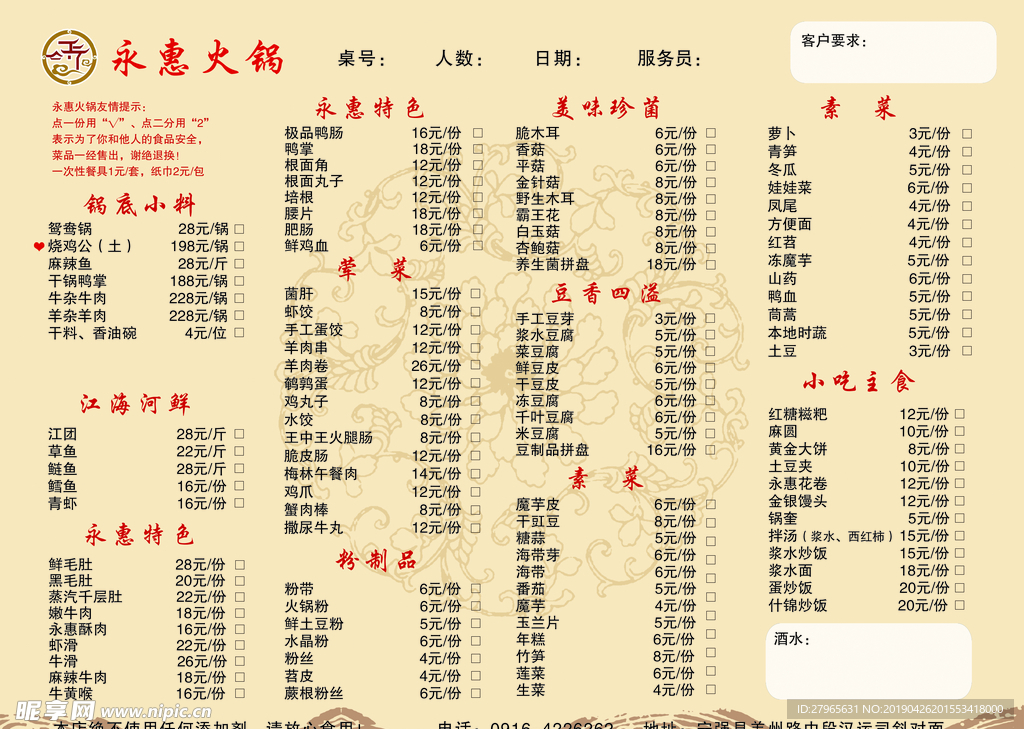 永惠火锅
桌号：
人数：
日期：
服务员：
客户要求：
永惠火锅友情提示：
点一份用“√”、点二分用“2”
表示为了你和他人的食品安全，
菜品一经售出，谢绝退换！
一次性餐具1元/套，纸巾2元/包
锅底小料
鸳鸯锅 28元/锅 □
❤烧鸡公（土） 198元/锅 □
麻辣鱼 28元/斤 □
干锅鸭掌 188元/锅 □
牛杂牛肉 228元/锅 □
羊杂羊肉 228元/锅 □
干料、香油碗 4元/位 □
江海河鲜
江团 28元/斤 □
草鱼 22元/斤 □
鲢鱼 28元/斤 □
鳕鱼 16元/份 □
青虾 16元/份 □
永惠特色
鲜毛肚 28元/份 □
黑毛肚 20元/份 □
蒸汽千层肚 22元/份 □
嫩牛肉 18元/份 □
永惠酥肉 16元/份 □
虾滑 22元/份 □
牛滑 26元/份 □
麻辣牛肉 18元/份 □
牛黄喉 16元/份 □
永惠特色
极品鸭肠 16元/份 □
鸭掌 18元/份 □
根面角 12元/份 □
根面丸子 12元/份 □
培根 12元/份 □
腰片 18元/份 □
肥肠 18元/份 □
鲜鸡血 6元/份 □
荤菜
菌肝 15元/份 □
虾饺 8元/份 □
手工蛋饺 12元/份 □
羊肉串 12元/份 □
羊肉卷 26元/份 □
鹌鹑蛋 12元/份 □
鸡丸子 8元/份 □
水饺 8元/份 □
王中王火腿肠 8元/份 □
脆皮肠 12元/份 □
梅林午餐肉 14元/份 □
鸡爪 12元/份 □
蟹肉棒 8元/份 □
撒尿牛丸 12元/份 □
粉制品
粉带 6元/份 □
火锅粉 6元/份 □
鲜土豆粉 5元/份 □
水晶粉 6元/份 □
粉丝 4元/份 □
苕皮 4元/份 □
蕨根粉丝 6元/份 □
美味珍菌
脆木耳 6元/份 □
香菇 6元/份 □
平菇 6元/份 □
金针菇 8元/份 □
野生木耳 8元/份 □
霸王花 8元/份 □
白玉菇 8元/份 □
杏鲍菇 8元/份 □
养生菌拼盘 18元/份 □
豆香四溢
手工豆芽 3元/份 □
浆水豆腐 5元/份 □
菜豆腐 5元/份 □
鲜豆皮 6元/份 □
干豆皮 5元/份 □
冻豆腐 6元/份 □
千叶豆腐 6元/份 □
米豆腐 5元/份 □
豆制品拼盘 16元/份 □
素菜
魔芋皮 6元/份 □
干豇豆 8元/份 □
糖蒜 5元/份 □
海带芽 6元/份 □
海带 6元/份 □
番茄 5元/份 □
魔芋 4元/份 □
玉兰片 5元/份 □
年糕 6元/份 □
竹笋 8元/份 □
莲菜 6元/份 □
生菜 4元/份 □
素菜
萝卜 3元/份 □
青笋 4元/份 □
冬瓜 5元/份 □
娃娃菜 6元/份 □
凤尾 4元/份 □
方便面 4元/份 □
红苕 4元/份 □
冻魔芋 5元/份 □
山药 6元/份 □
鸭血 5元/份 □
茼蒿 5元/份 □
本地时蔬 5元/份 □
土豆 3元/份 □
小吃主食
红糖糍粑 12元/份 □
麻圆 10元/份 □
黄金大饼 8元/份 □
土豆夹 10元/份 □
永惠花卷 12元/份 □
金银馒头 12元/份 □
锅奎 5元/份 □
拌汤（浆水、西红柿）15元/份 □
浆水炒饭 15元/份 □
浆水面 18元/份 □
蛋炒饭 20元/份 □
什锦炒饭 20元/份 □
酒水：
昵享网 www.nipic.cn
ID:27965631 NO:20190426201553418000
本店绝不使用任何添加剂，请放心食用！ 电话：0916-4226262 地址：宁强县羌州路中段汉运司斜对面